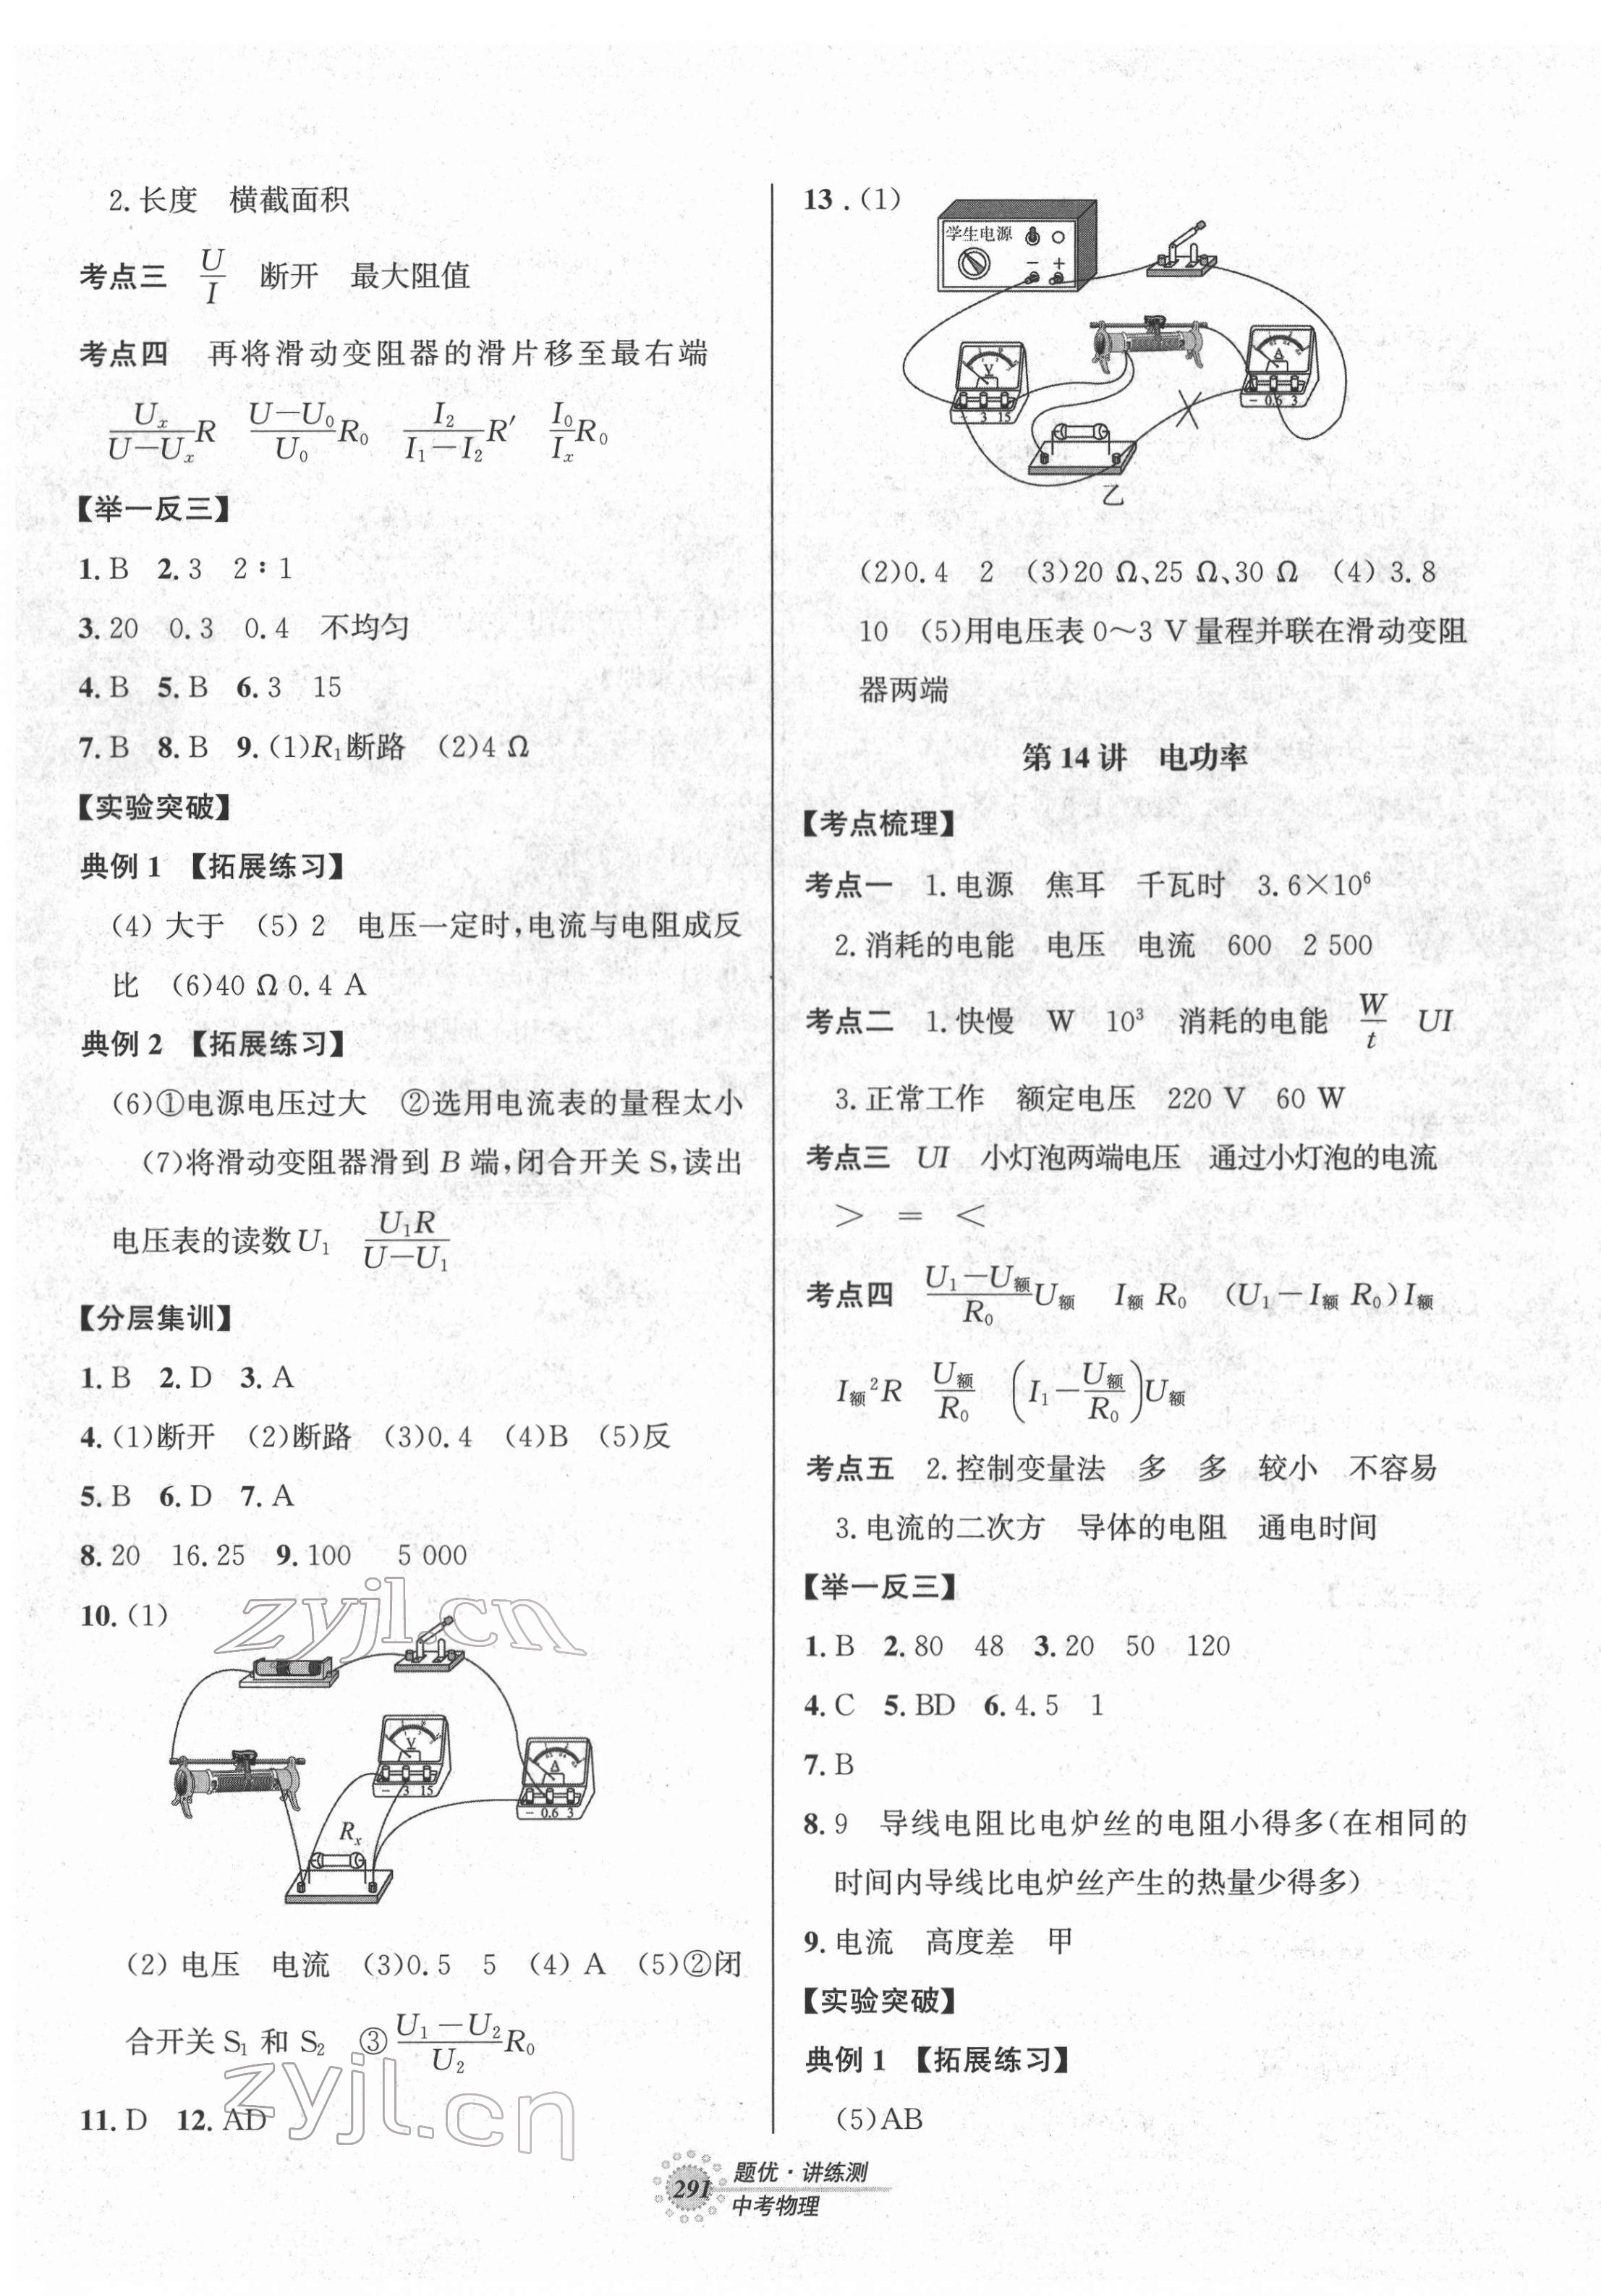 2.长度　横截面积
考点三　U/I　断开　最大阻值
考点四　再将滑动变阻器的滑片移至最右端
Uₓ/(U－Uₓ) R　(U－U₀)/U₀ R₀　I₂/(I₁－I₂) R′　I₀/Iₓ R₀
【举一反三】
1.B　2.3　2∶1
3.20　0.3　0.4　不均匀
4.B　5.B　6.3　15
7.B　8.B　9.(1)R₁断路　(2)4 Ω
【实验突破】
典例 1　【拓展练习】
(4)大于　(5)2　电压一定时,电流与电阻成反
比　(6)40 Ω 0.4 A
典例 2　【拓展练习】
(6)①电源电压过大　②选用电流表的量程太小
(7)将滑动变阻器滑到 B 端,闭合开关 S,读出
电压表的读数 U₁　U₁R/(U－U₁)
【分层集训】
1.B　2.D　3.A
4.(1)断开　(2)断路　(3)0.4　(4)B　(5)反
5.B　6.D　7.A
8.20　16.25　9.100　5 000
10.(1)
zyjl.cn
V
－ 3 15
A
－ 0.6 3
Rₓ
(2)电压　电流　(3)0.5　5　(4)A　(5)②闭
合开关 S₁ 和 S₂　③(U₁－U₂)/U₂ R₀
zyjl.cn
11.D　12.AD
13.(1)
学生电源
－ ＋
V
－ 3 15
A
－ 0.6 3
乙
(2)0.4　2　(3)20 Ω、25 Ω、30 Ω　(4)3.8
10　(5)用电压表 0～3 V 量程并联在滑动变阻
器两端
第 14 讲　电功率
【考点梳理】
考点一　1.电源　焦耳　千瓦时　3.6×10⁶
2.消耗的电能　电压　电流　600　2 500
考点二　1.快慢　W　10³　消耗的电能　W/t　UI
3.正常工作　额定电压　220 V　60 W
考点三　UI　小灯泡两端电压　通过小灯泡的电流
＞　＝　＜
考点四　(U₁－U额)/R₀ U额　I额 R₀　(U₁－I额 R₀)I额
I额²R　U额/R₀　(I₁－U额/R₀)U额
考点五　2.控制变量法　多　多　较小　不容易
3.电流的二次方　导体的电阻　通电时间
【举一反三】
1.B　2.80　48　3.20　50　120
4.C　5.BD　6.4.5　1
7.B
8.9　导线电阻比电炉丝的电阻小得多(在相同的
时间内导线比电炉丝产生的热量少得多)
9.电流　高度差　甲
【实验突破】
典例 1　【拓展练习】
(5)AB
291
题优·讲练测
中考物理